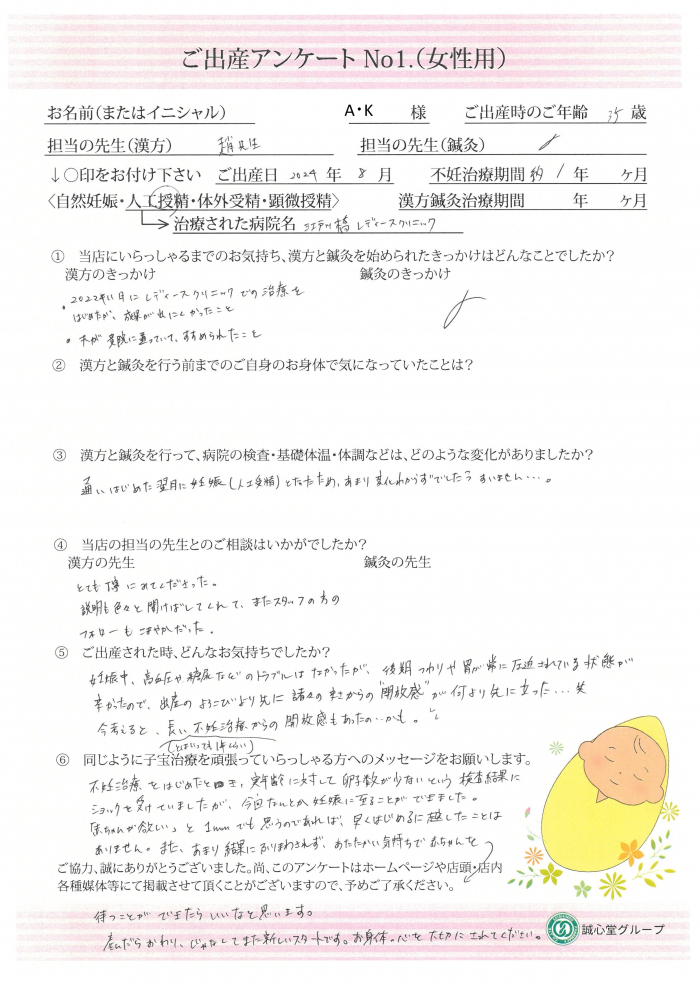 ご出産アンケート No1.(女性用)
お名前(またはイニシャル) A・K 様 ご出産時のご年齢 35 歳
担当の先生(漢方) 趙先生 担当の先生(鍼灸)
↓○印をお付け下さい ご出産日 2024 年 8 月 不妊治療期間 約 1 年 ヶ月
〈自然妊娠・人工授精・体外受精・顕微授精〉 漢方鍼灸治療期間 年 ヶ月
治療された病院名 江戸川橋 レディースクリニック
① 当店にいらっしゃるまでのお気持ち、漢方と鍼灸を始められたきっかけはどんなことでしたか?
漢方のきっかけ 鍼灸のきっかけ
・2022年11月にレディースクリニックでの治療を
はじめたが、成果が出にくかったこと
・夫が 貴院に通っていて、すすめられたこと
② 漢方と鍼灸を行う前までのご自身のお身体で気になっていたことは?
③ 漢方と鍼灸を行って、病院の検査・基礎体温・体調などは、どのような変化がありましたか?
通いはじめた翌月に妊娠(人工受精)となったため、あまり変化わからずでした。すいません…。
④ 当店の担当の先生とのご相談はいかがでしたか?
漢方の先生 鍼灸の先生
とても丁寧にみてくださった。
説明も色々と聞けばしてくれて、またスタッフの方の
フォローもこまやかだった。
⑤ ご出産された時、どんなお気持ちでしたか?
妊娠中、高血圧や糖尿などのトラブルはなかったが、後期つわりや胃が常に圧迫されている状態が
辛かったので、出産のよろこびより先に諸々の辛さからの"開放感"が何より先に立った…笑
今考えると、長い不妊治療からの開放感もあったの…かも。
(とはいっても1年くらい)
⑥ 同じように子宝治療を頑張っていらっしゃる方へのメッセージをお願いします。
不妊治療をはじめたとき、実年齢に対して卵子数が少ないという検査結果に
ショックを受けていましたが、今回なんとか妊娠に至ることができました。
「赤ちゃんが欲しい」と1mmでも思うのであれば、早くはじめるに越したことは
ありません。また、あまり結果にふりまわされず、あたたかい気持ちで赤ちゃんを
ご協力、誠にありがとうございました。尚、このアンケートはホームページや店頭・店内
各種媒体等にて掲載させて頂くことがございますので、予めご了承ください。
待つことができたらいいなと思います。
産んだらおわり、じゃなくてまた新しいスタートです。お身体・心を大切にされてください。
誠心堂グループ